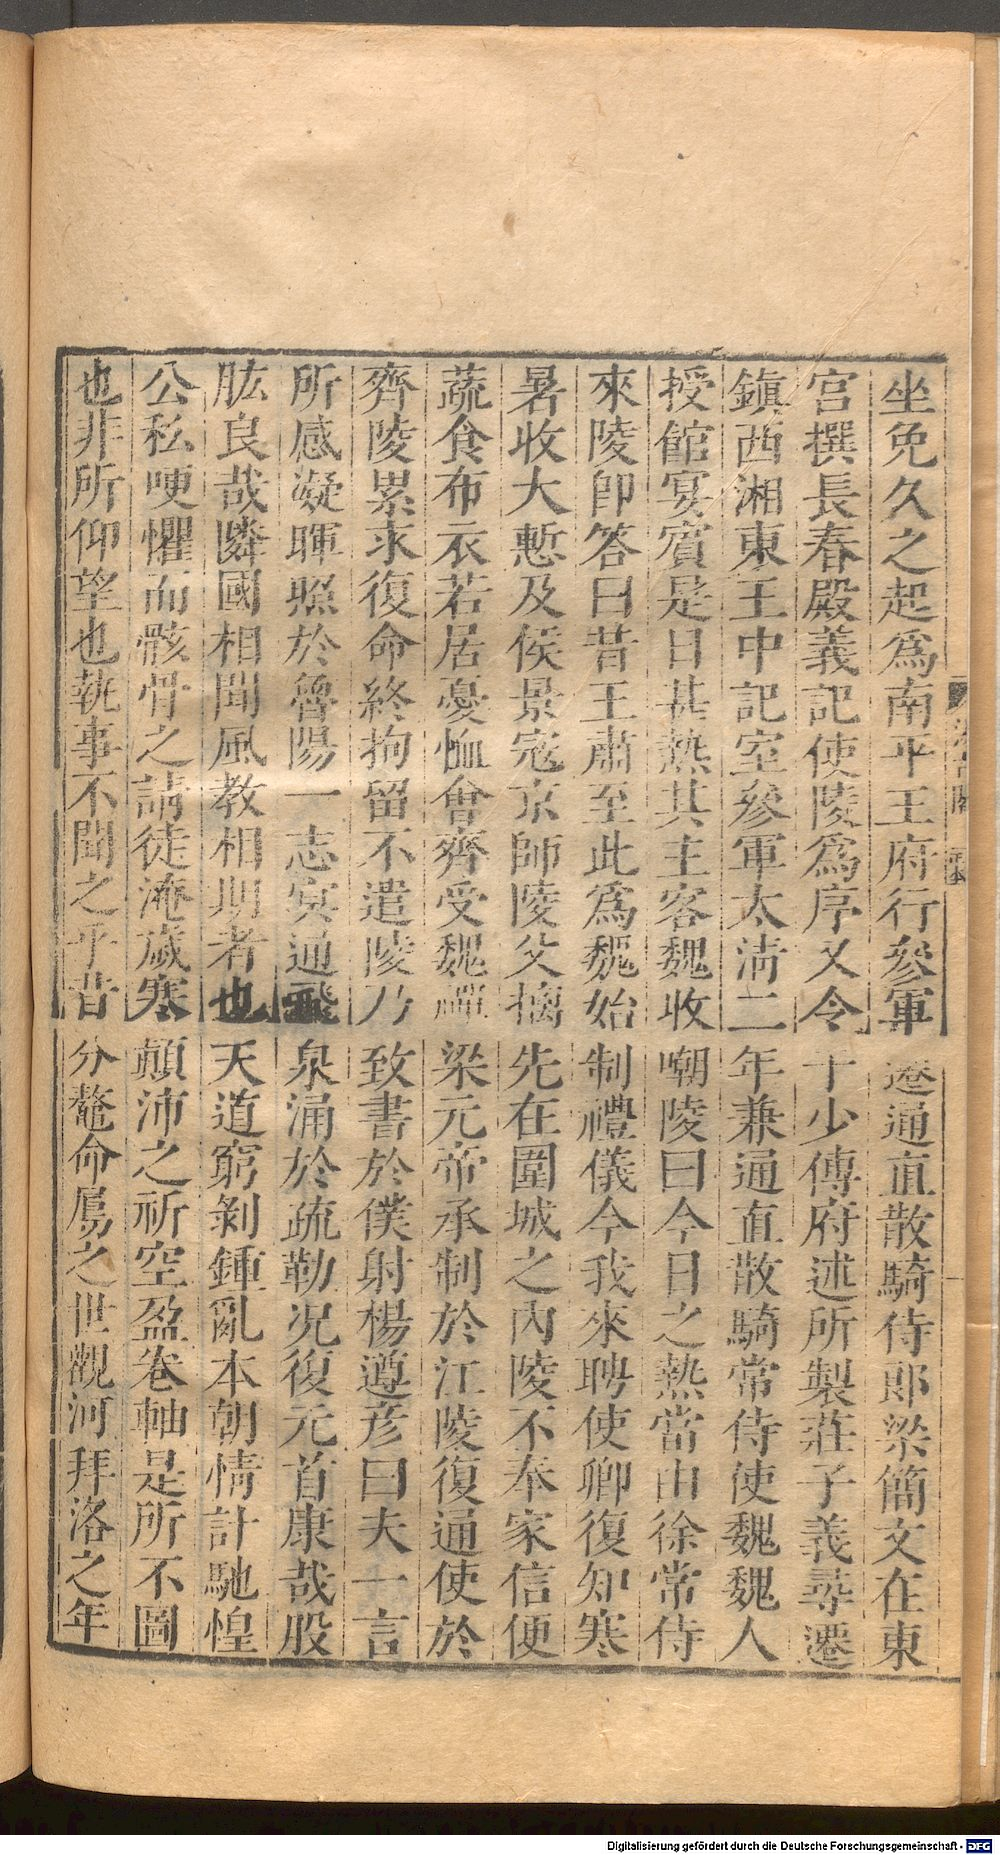 坐免久之起爲南平王府行參軍遷通直散騎侍郎梁簡文在東
宮撰長春殿義記使陵爲序又令十少傅府述所製莊子義尋遷
鎮西湘東王中記室參軍太淸二年兼通直散騎常侍使魏魏人
授館宴賓是日甚熱其主客魏收嘲陵曰今日之熱當由徐常侍
來陵卽答曰昔王肅至此爲魏始制禮儀今我來聘使卿復知寒
暑收大慙及侯景寇京師陵父摛先在圍城之內陵不奉家信便
蔬食布衣若居憂恤會齊受魏禪梁元帝承制於江陵復通使於
齊陵累求復命終拘留不遣陵乃致書於僕射楊遵彦曰夫一言
所感凝暉照於魯陽一志冥通飛泉涌於疏勒况復元首康哉股
肱良哉隣國相聞風教相期者也天道窮剝鍾亂本朝情計馳惶
公私哽懼而骸骨之請徒淹歲寒顛沛之祈空盈卷軸是所不圖
也非所仰望也執事不聞之乎昔分鼇命屬之世觀河拜洛之年
Digitalisierung gefördert durch die Deutsche Forschungsgemeinschaft - DFG